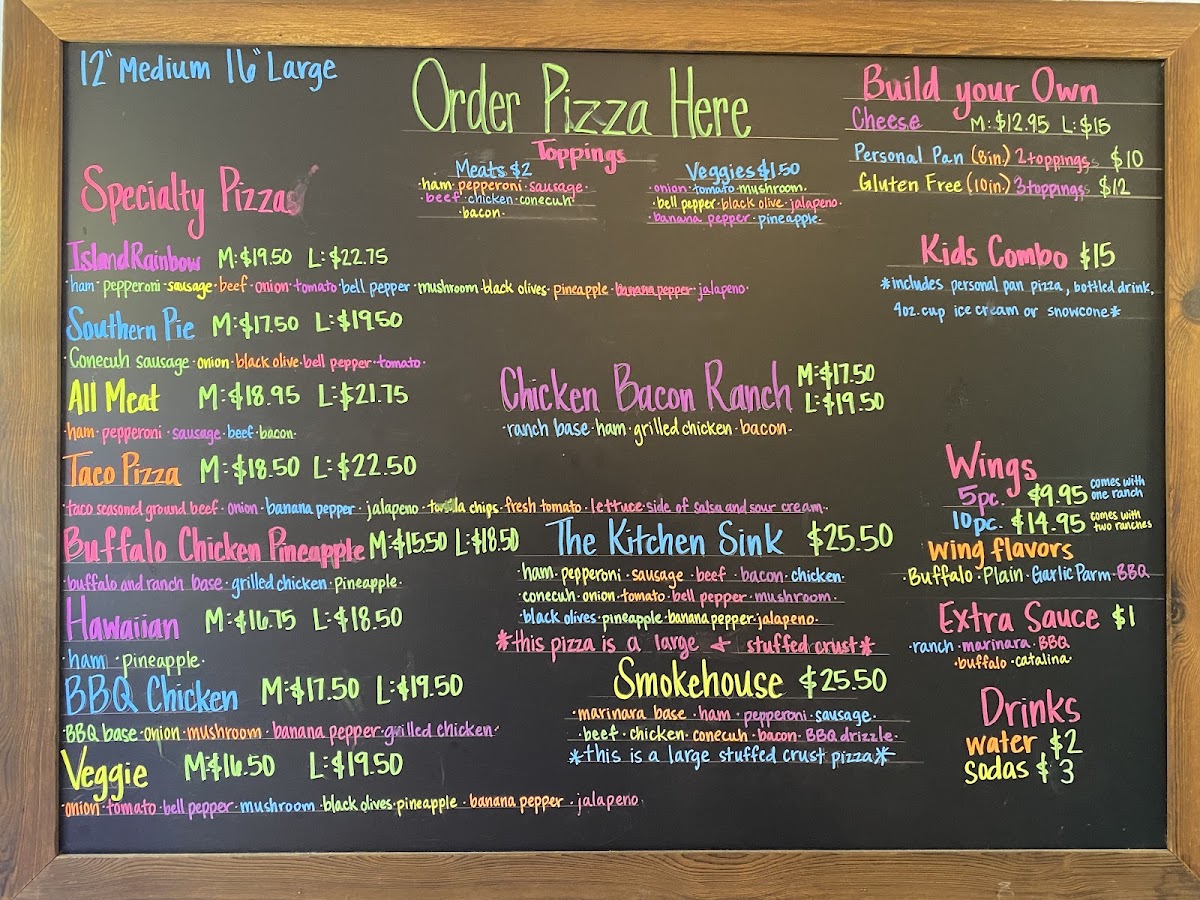 12" Medium 16" Large
Order Pizza Here
Toppings
Meats $2
·ham·pepperoni·sausage·
·beef·chicken·conecuh·
·bacon·
Veggies $1.50
·onion·tomato·mushroom·
·bell pepper·black olive·jalapeno·
·banana pepper·pineapple·
Build your Own
Cheese M:$12.95 L:$15
Personal Pan (8in.) 2 toppings $10
Gluten Free (10in.) 3 toppings $12
Kids Combo $15
*includes personal pan pizza, bottled drink,
4oz. cup ice cream or snowcone*
Specialty Pizzas
Island Rainbow M:$19.50 L:$22.75
·ham·pepperoni·sausage·beef·onion·tomato·bell pepper·mushroom·black olives·pineapple·banana pepper·jalapeno·
Southern Pie M:$17.50 L:$19.50
·Conecuh sausage·onion·black olive·bell pepper·tomato·
All Meat M:$18.95 L:$21.75
·ham·pepperoni·sausage·beef·bacon·
Taco Pizza M:$18.50 L:$22.50
·taco seasoned ground beef·onion·banana pepper·jalapeno·tortilla chips·fresh tomato·lettuce·side of salsa and sour cream·
Buffalo Chicken Pineapple M:$15.50 L:$18.50
·buffalo and ranch base·grilled chicken·pineapple·
Hawaiian M:$16.75 L:$18.50
·ham·pineapple·
BBQ Chicken M:$17.50 L:$19.50
·BBQ base·onion·mushroom·banana pepper·grilled chicken·
Veggie M:$16.50 L:$19.50
·onion·tomato·bell pepper·mushroom·black olives·pineapple·banana pepper·jalapeno·
Chicken Bacon Ranch M:$17.50
L:$19.50
·ranch base·ham·grilled chicken·bacon·
The Kitchen Sink $25.50
·ham·pepperoni·sausage·beef·bacon·chicken·
·conecuh·onion·tomato·bell pepper·mushroom·
·black olives·pineapple·banana pepper·jalapeno·
*this pizza is a large & stuffed crust*
Smokehouse $25.50
·marinara base·ham·pepperoni·sausage·
·beef·chicken·conecuh·bacon·BBQ drizzle·
*this is a large stuffed crust pizza*
Wings
5pc. $9.95 comes with one ranch
10pc. $14.95 comes with two ranches
wing flavors
·Buffalo·Plain·Garlic Parm·BBQ
Extra Sauce $1
·ranch·marinara·BBQ
·buffalo·catalina·
Drinks
water $2
sodas $3